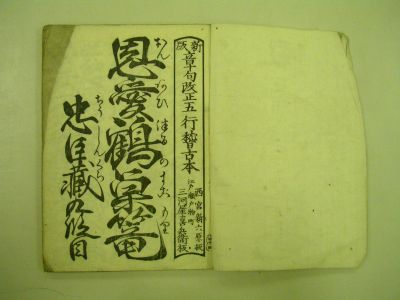 新版
章句改正五行稽古本
西宮新六原板
江戸瀬戸物町
三河屋喜兵衛板
恩愛鶴巣篭
おんあひつるのすごもり
忠臣蔵九段目
ちうしんぐら